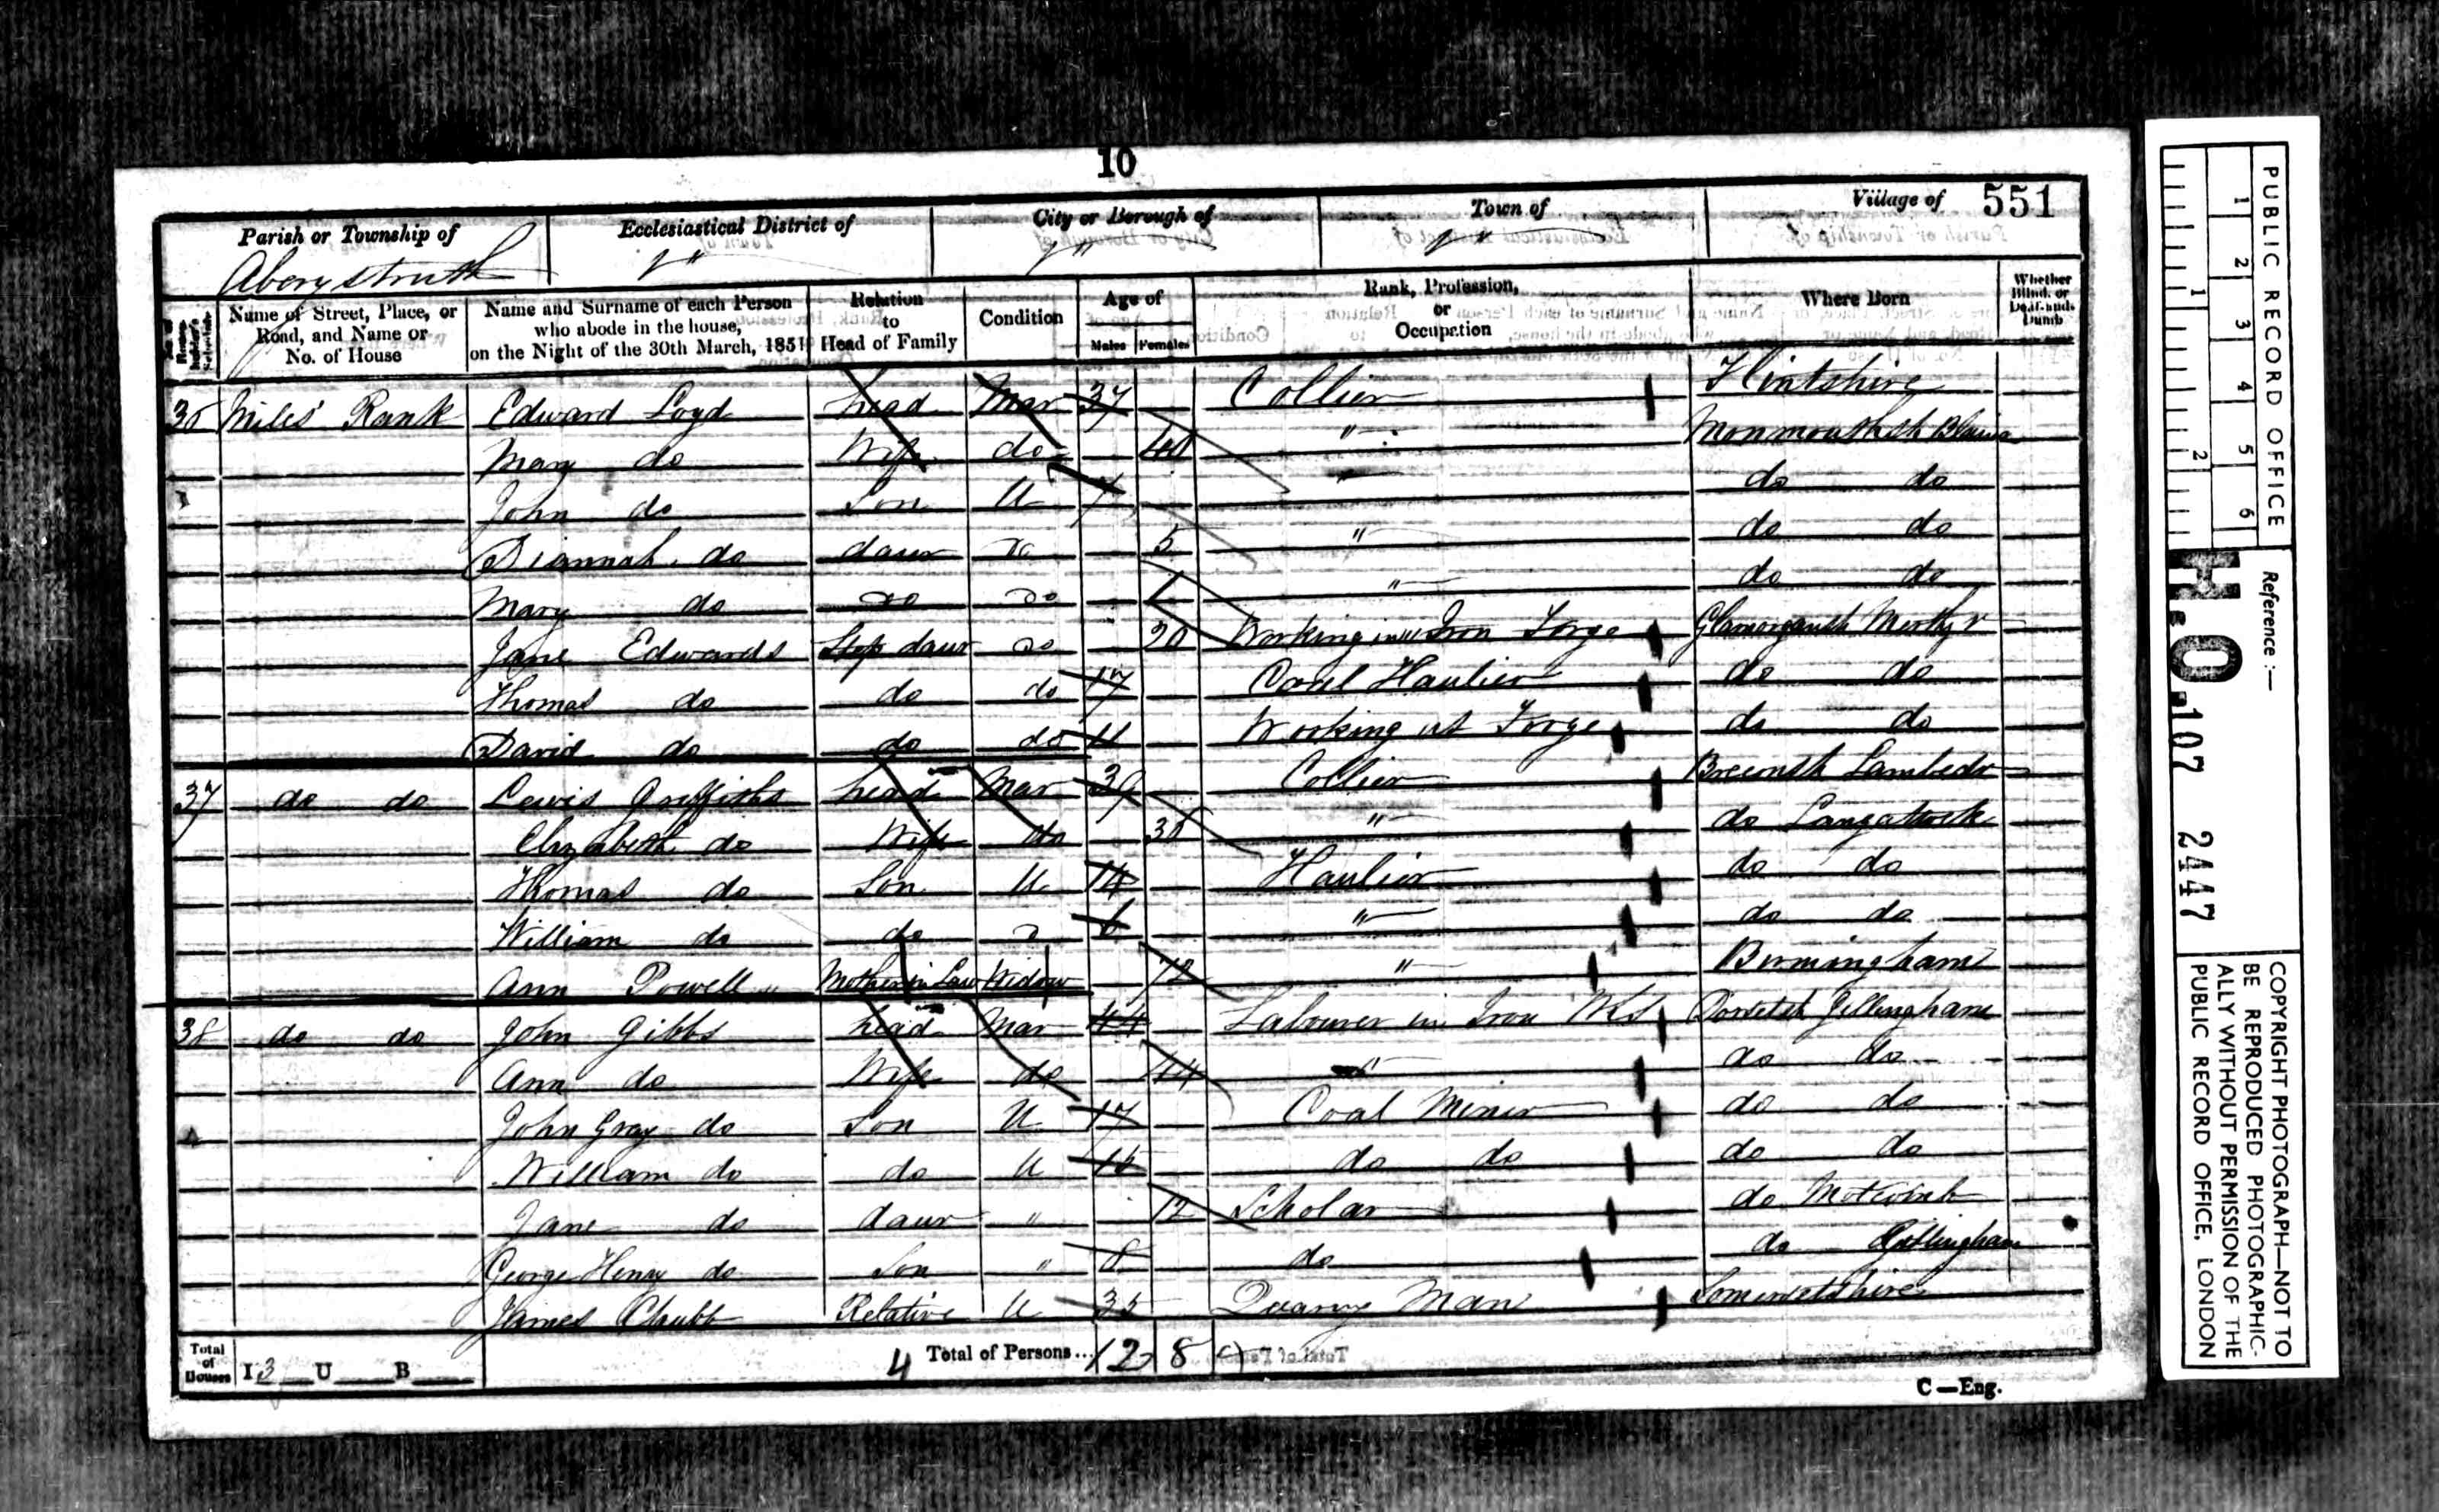 10
Parish or Township of Ecclesiastical District of City or Borough of Town of Village of 551
Aberystruth
Name of Street, Place, or Road, and Name or No. of House
Name and Surname of each Person who abode in the house, on the Night of the 30th March, 1851
Relation to Head of Family
Condition
Age of
Males Females
Rank, Profession, or Occupation
Where Born
Whether Blind, or Deaf-and-Dumb
Miles' Rank Edward Loyd head Mar 37 Collier Flintshire
Mary do Wife do 40 " Monmouthsh Blaina
John do Son U 7 " do do
Diannah do daur do 5 " do do
Mary do do do 1 " do do
Jane Edwards Step daur do 20 Working in Iron Forge Glamorgansh Merthyr
Thomas do do do 17 Coal Haulier do do
David do do do 11 Working at Forge do do
37 do do Lewis Griffiths head Mar 39 Collier Breconsh Lambedr
Elizabeth do Wife do 38 " do Langattock
Thomas do Son U 14 Haulier do do
William do do 6 " do do
Ann Powell Mother in Law Widow 72 " Birmingham
38 do do John Gibbs head Mar 44 Labourer in Iron Wks Dorsetsh Gillingham
Ann do Wife do 44 " do do
John Gray do Son U 17 Coal Miner do do
William do do U do do do do
Jane do daur " 12 Scholar do Motcomb
George Henry do Son " 8 do do Gillingham
James Chubb Relative U 35 Quarry Man Somersetshire
Total of Houses I 3 U B 4 Total of Persons... 12 8
C—Eng.
PUBLIC RECORD OFFICE
1 2 3 4 5 6
1 2
Reference :—
H.O. 107 2447
COPYRIGHT PHOTOGRAPH—NOT TO
BE REPRODUCED PHOTOGRAPHIC-
ALLY WITHOUT PERMISSION OF THE
PUBLIC RECORD OFFICE, LONDON